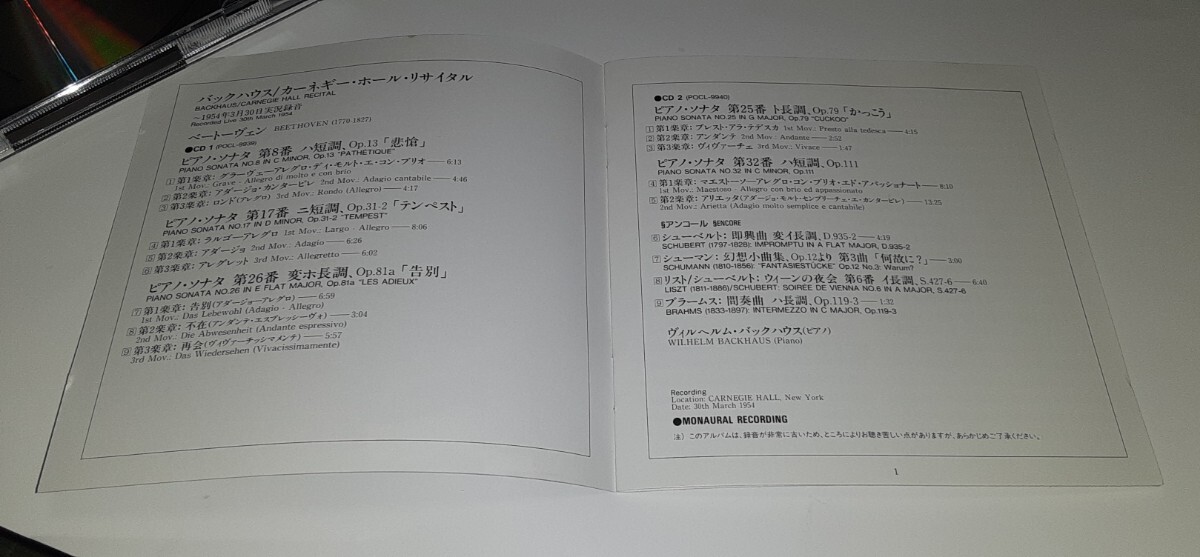 バックハウス/カーネギー・ホール・リサイタル
BACKHAUS/CARNEGIE HALL RECITAL
〜1954年3月30日実況録音
Recorded Live 30th March 1954
ベートーヴェン BEETHOVEN (1770-1827)
●CD 1 (POCL-9939)
ピアノ・ソナタ 第8番 ハ短調、Op.13「悲愴」
PIANO SONATA NO.8 IN C MINOR, Op.13 "PATHETIQUE"
①第1楽章: グラーヴェーアレグロ・ディ・モルト・エ・コン・ブリオ — 6:13
1st Mov.: Grave - Allegro di molto e con brio
②第2楽章: アダージョ・カンタービレ 2nd Mov.: Adagio cantabile — 4:46
③第3楽章: ロンド(アレグロ) 3rd Mov.: Rondo (Allegro) — 4:17
ピアノ・ソナタ 第17番 ニ短調、Op.31-2「テンペスト」
PIANO SONATA NO.17 IN D MINOR, Op.31-2 "TEMPEST"
④第1楽章: ラルゴーアレグロ 1st Mov.: Largo - Allegro — 8:06
⑤第2楽章: アダージョ 2nd Mov.: Adagio — 6:26
⑥第3楽章: アレグレット 3rd Mov.: Allegretto — 6:02
ピアノ・ソナタ 第26番 変ホ長調、Op.81a「告別」
PIANO SONATA NO.26 IN E FLAT MAJOR, Op.81a "LES ADIEUX"
⑦第1楽章: 告別(アダージョーアレグロ) — 6:59
1st Mov.: Das Lebewohl (Adagio - Allegro)
⑧第2楽章: 不在(アンダンテ・エスプレッシーヴォ) — 3:04
2nd Mov.: Die Abwesenheit (Andante espressivo)
⑨第3楽章: 再会(ヴィヴァーチッシマメンテ) — 5:57
3rd Mov.: Das Wiedersehen (Vivacissimamente)
●CD 2 (POCL-9940)
ピアノ・ソナタ 第25番 ト長調、Op.79「かっこう」
PIANO SONATA NO.25 IN G MAJOR, Op.79 "CUCKOO"
①第1楽章: プレスト・アラ・テデスカ 1st Mov.: Presto alla tedesca — 4:15
②第2楽章: アンダンテ 2nd Mov.: Andante — 2:52
③第3楽章: ヴィヴァーチェ 3rd Mov.: Vivace — 1:47
ピアノ・ソナタ 第32番 ハ短調、Op.111
PIANO SONATA NO.32 IN C MINOR, Op.111
④第1楽章: マエストーソーアレグロ・コン・ブリオ・エド・アパッショナート — 8:10
1st Mov.: Maestoso - Allegro con brio ed appassionato
⑤第2楽章: アリエッタ(アダージョ・モルト・センプリーチェ・エ・カンタービレ) — 13:25
2nd Mov.: Arietta (Adagio molto semplice e cantabile)
§アンコール §ENCORE
⑥シューベルト: 即興曲 変イ長調、D.935-2 — 4:19
SCHUBERT (1797-1828): IMPROMPTU IN A FLAT MAJOR, D.935-2
⑦シューマン: 幻想小曲集、Op.12より 第3曲「何故に?」 — 3:00
SCHUMANN (1810-1856): "FANTASIESTÜCKE" Op.12 No.3: Warum?
⑧リスト/シューベルト: ウィーンの夜会 第6番 イ長調、S.427-6 — 6:40
LISZT (1811-1886)/SCHUBERT: SOIRÉE DE VIENNA NO.6 IN A MAJOR, S.427-6
⑨ブラームス: 間奏曲 ハ長調、Op.119-3 — 1:32
BRAHMS (1833-1897): INTERMEZZO IN C MAJOR, Op.119-3
ヴィルヘルム・バックハウス(ピアノ)
WILHELM BACKHAUS (Piano)
Recording
Location: CARNEGIE HALL, New York
Date: 30th March 1954
●MONAURAL RECORDING
注) このアルバムは、録音が非常に古いため、ところによりお聴き苦しい点がありますが、あらかじめご了承ください。
1